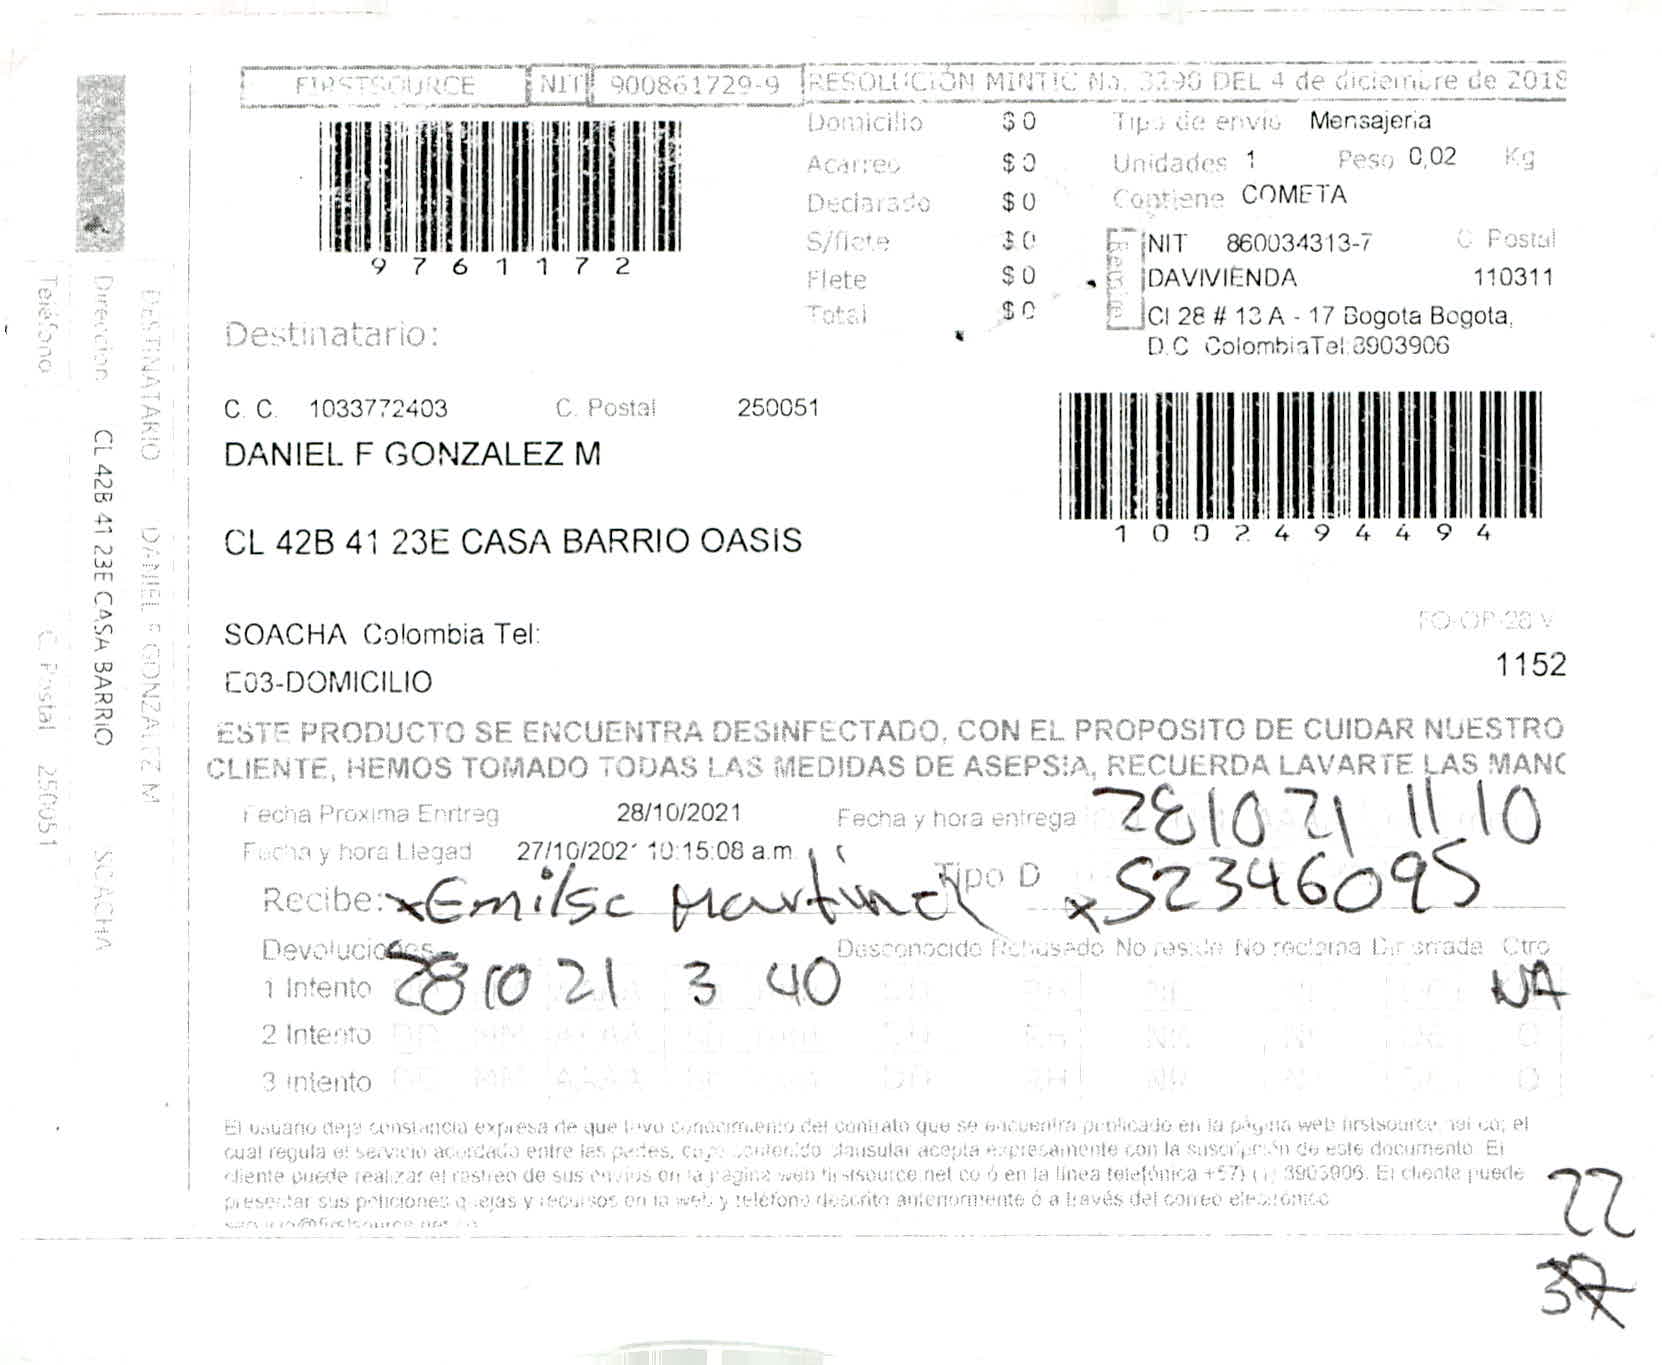 FIRSTSOURCE NIT 900861729-9 RESOLUCIÓN MINTIC No. 3290 DEL 4 de diciembre de 2018
9761172
Domicilio $ 0
Acarreo $ 0
Declarado $ 0
S/flete $ 0
Flete $ 0
Total $ 0
Tipo de envio Mensajeria
Unidades 1 Peso 0,02 Kg
Contiene COMETA
NIT 860034313-7 C Postal
DAVIVIENDA 110311
Cl 28 # 13 A - 17 Bogota Bogota,
D.C Colombia Tel:3903906
Destinatario:
C. C. 1033772403 C. Postal 250051
DANIEL F GONZALEZ M
1002494494
CL 42B 41 23E CASA BARRIO OASIS
SOACHA Colombia Tel:
FO-OP-28 V
1152
E03-DOMICILIO
ESTE PRODUCTO SE ENCUENTRA DESINFECTADO, CON EL PROPOSITO DE CUIDAR NUESTRO
CLIENTE, HEMOS TOMADO TODAS LAS MEDIDAS DE ASEPSIA, RECUERDA LAVARTE LAS MANO
Fecha Proxima Enrtreg 28/10/2021 Fecha y hora entrega 28 10 21 11 10
Fecha y hora Llegad 27/10/2021 10:15:08 a.m.
Recibe: x Emilse Martinez Tipo D x 52346095
Devoluciones Desconocido Rehusado No reside No reclama Dir errada Otro
1 Intento 28 10 21 3 40 NA
2 Intento DD MM AAAA RH NR O
3 intento DD MM AAAA DD RH NR O
El usuario deja constancia expresa de que tuvo conocimiento del contrato que se encuentra publicado en la página web firstsource.net.co; el
cual regula el servicio acordado entre las partes, cuyo contenido clausular acepta expresamente con la suscripción de este documento. El
cliente puede realizar el rastreo de sus envios en la pagina web firstsource.net.co ó en la línea telefónica +57) (1) 3903906. El cliente puede
presentar sus peticiones quejas y recursos en la web y teléfono descrito anteriormente ó a través del correo electrónico
22
37
DESTINATARIO DANIEL F GONZALEZ M
Direccion CL 42B 41 23E CASA BARRIO SOACHA
Teléfono C. Postal 250051